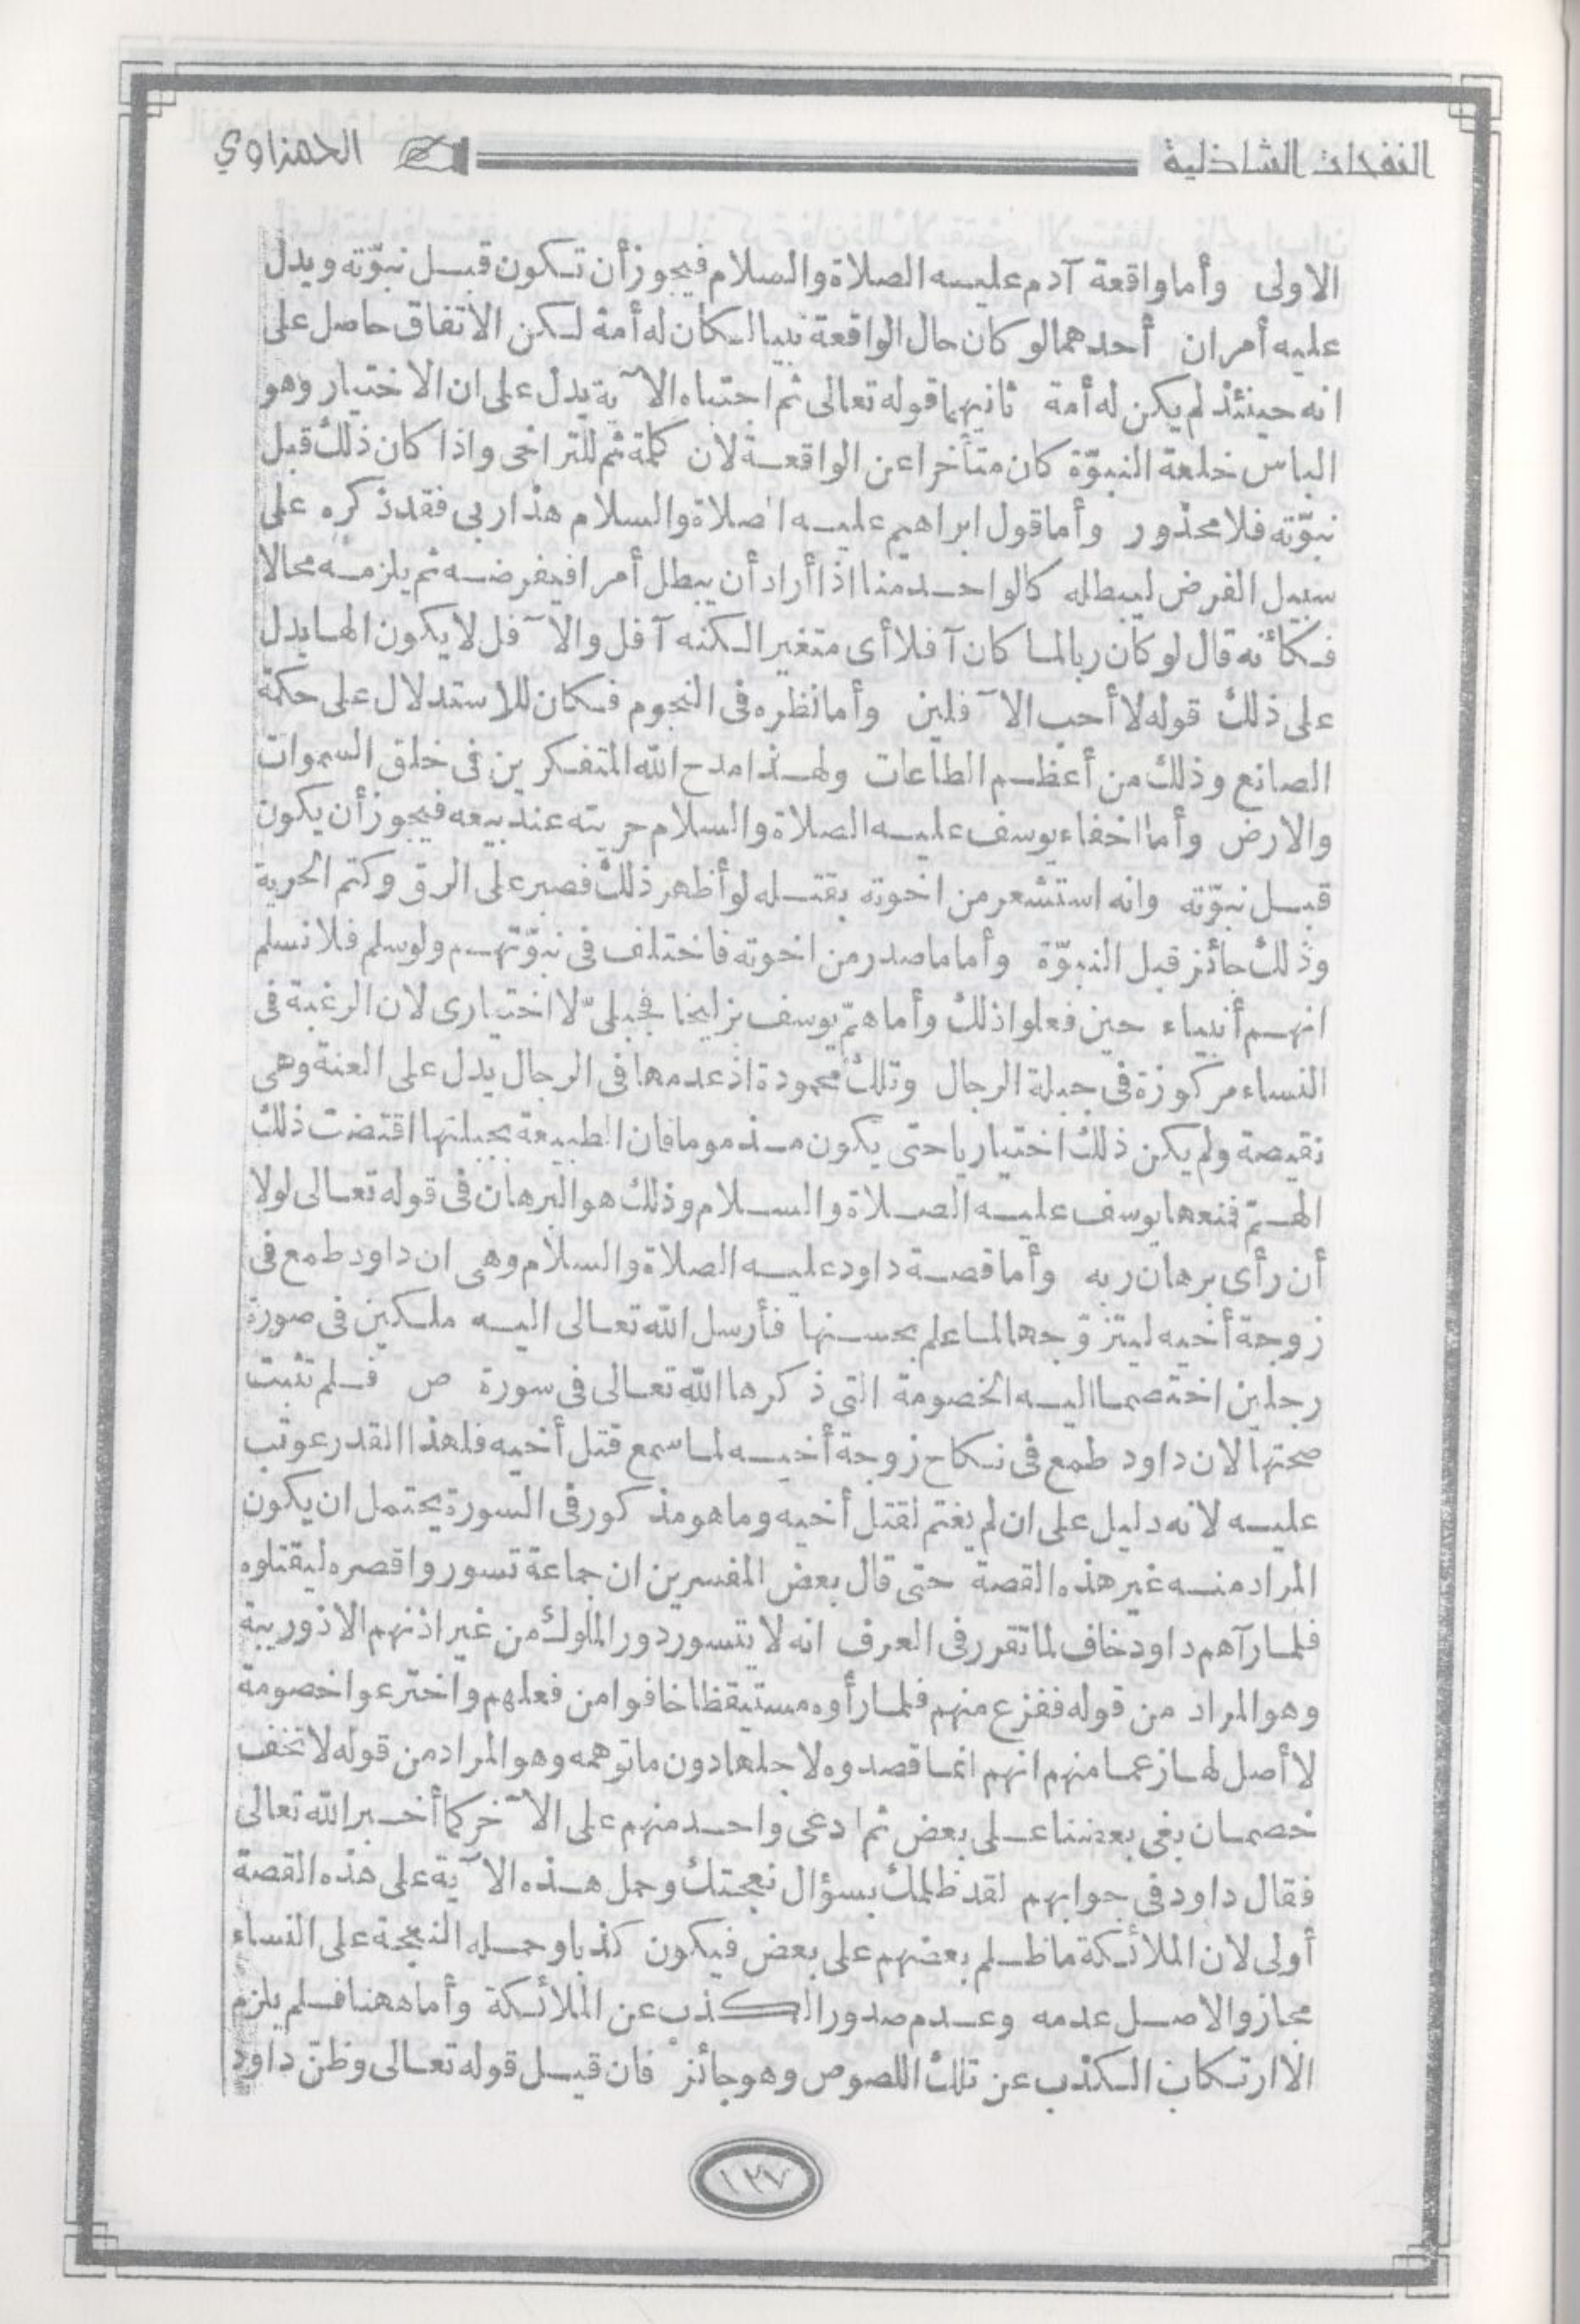 النفحات الشاذلية
الحمزاوي
الاولى وأما واقعة آدم عليه الصلاة والسلام فيجوز أن تكون قبل نبوّته ويدل
عليه أمران أحدهما لو كان حال الواقعة نبيا لكان له أمة لكن الاتفاق حاصل على
انه حينئذ لم يكن له أمة ثانيهما قوله تعالى ثم اجتباه الآية يدل على ان الاختيار وهو
الباس خلعة النبوّة كان متأخرا عن الواقعة لان كلمة ثم للتراخى واذا كان ذلك قبل
نبوّته فلا محذور وأما قول ابراهيم عليه الصلاة والسلام هذا ربى فقد ذكره على
سبيل الفرض ليبطله كالواحد منا اذا أراد أن يبطل أمرا فيفرضه ثم يلزمه محالا
فكأنه قال لو كان ربا لما كان آفلا أى متغيرا لكنه آفل والآفل لا يكون الها يدل
على ذلك قوله لا أحب الآفلين وأما نظره فى النجوم فكان للاستدلال على حكمة
الصانع وذلك من أعظم الطاعات ولهذا مدح الله المتفكرين فى خلق السموات
والارض وأما اخفاء يوسف عليه الصلاة والسلام حريته عند بيعه فيجوز أن يكون
قبل نبوّته وانه استشعر من اخوته بقتله لو أظهر ذلك فصبر على الرق وكتم الحرية
وذلك جائز قبل النبوّة وأما ما صدر من اخوته فاختلف فى نبوّتهم ولو سلم فلا نسلم
انهم أنبياء حين فعلوا ذلك وأما همّ يوسف بزليخا فجبلىّ لا اختيارى لان الرغبة فى
النساء مركوزة فى جبلة الرجال وتلك محمودة اذ عدمها فى الرجال يدل على العنة وهى
نقيصة ولم يكن ذلك اختياريا حتى يكون مذموما فان الطبيعة بجبلتها اقتضت ذلك
الهمّ فمنعها يوسف عليه الصلاة والسلام وذلك هو البرهان فى قوله تعالى لولا
أن رأى برهان ربه وأما قصة داود عليه الصلاة والسلام وهى ان داود طمع فى
زوجة أخيه ليتزوّجها لما علم بحسنها فأرسل الله تعالى اليه ملكين فى صورة
رجلين اختصما اليه الخصومة التى ذكرها الله تعالى فى سورة ص فلم تثبت
صحتها لان داود طمع فى نكاح زوجة أخيه لما سمع قتل أخيه فلهذا القدر عوتب
عليه لانه دليل على ان لم يغتم لقتل أخيه وما هو مذكور فى السورة يحتمل ان يكون
المراد منه غير هذه القصة حتى قال بعض المفسرين ان جماعة تسوروا قصره ليقتلوه
فلما رآهم داود خاف لما تقرر فى العرف انه لا يتسور دور الملوك من غير اذنهم الا ذو ريبة
وهو المراد من قوله ففزع منهم فلما رأوه مستيقظا خافوا من فعلهم واخترعوا خصومة
لا أصل لها زعما منهم انهم انما قصدوه لاجلها دون ما توهمه وهو المراد من قوله لا تخف
خصمان بغى بعضنا على بعض ثم ادعى واحد منهم على الآخر كما أخبر الله تعالى
فقال داود فى جوابهم لقد ظلمك بسؤال نعجتك وحمل هذه الآية على هذه القصة
أولى لان الملائكة ما ظلم بعضهم على بعض فيكون كذبا وحمله النعجة على النساء
مجاز والاصل عدمه وعدم صدور الكذب عن الملائكة وأما ههنا فلم يلزم
الا ارتكاب الكذب عن تلك اللصوص وهو جائز فان قيل قوله تعالى وظنّ داود
١٢٧